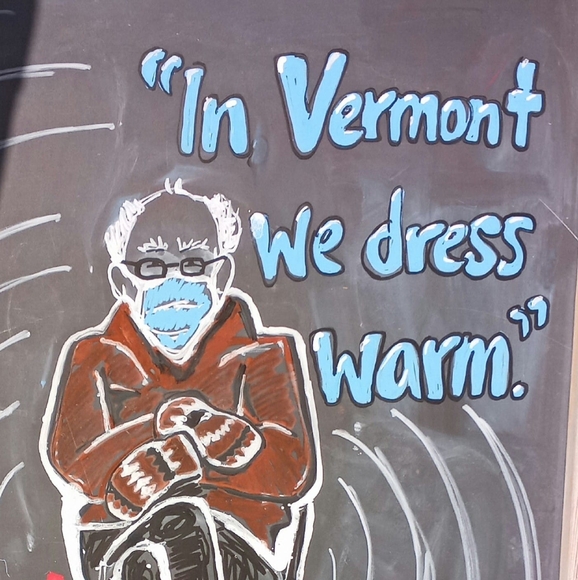 “In Vermont
we dress
warm.”